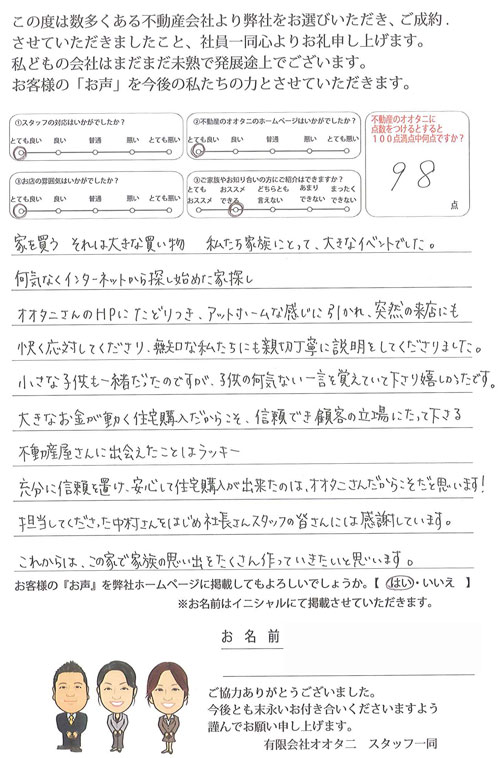 この度は数多くある不動産会社より弊社をお選びいただき、ご成約.
させていただきましたこと、社員一同心よりお礼申し上げます。
私どもの会社はまだまだ未熟で発展途上でございます。
お客様の「お声」を今後の私たちの力とさせていただきます。
①スタッフの対応はいかがでしたか?
とても良い 良い 普通 悪い とても悪い
②不動産のオオタニのホームページはいかがでしたか?
とても良い 良い 普通 悪い とても悪い
③お店の雰囲気はいかがでしたか?
とても良い 良い 普通 悪い とても悪い
③ご家族やお知り合いの方にご紹介はできますか?
とても オススメ どちらとも あまり まったく
オススメ できる 言えない できない できない
不動産のオオタニに
点数をつけるとすると
100点満点中何点ですか?
98
点
家を買う それは大きな買い物 私たち家族にとって、大きなイベントでした。
何気なくインターネットから探し始めた家探し
オオタニさんのHPにたどりつき、アットホームな感じに引かれ、突然の来店にも
快く応対してくださり、無知な私たちにも親切丁寧に説明をしてくださりました。
小さな子供も一緒だったのですが、子供の何気ない一言を覚えていて下さり嬉しかったです。
大きなお金が動く住宅購入だからこそ、信頼でき顧客の立場にたって下さる
不動産屋さんに出会えたことはラッキー
充分に信頼を置け、安心して住宅購入が出来たのは、オオタニさんだからこそだと思います!
担当してくださった中村さんをはじめ社長さんスタッフの皆さんには感謝しています。
これからは、この家で家族の思い出をたくさん作っていきたいと思います。
お客様の『お声』を弊社ホームページに掲載してもよろしいでしょうか。【 はい・いいえ 】
※お名前はイニシャルにて掲載させていただきます。
お 名 前
ご協力ありがとうございました。
今後とも末永いお付き合いくださいますよう
謹んでお願い申し上げます。
有限会社オオタニ スタッフ一同